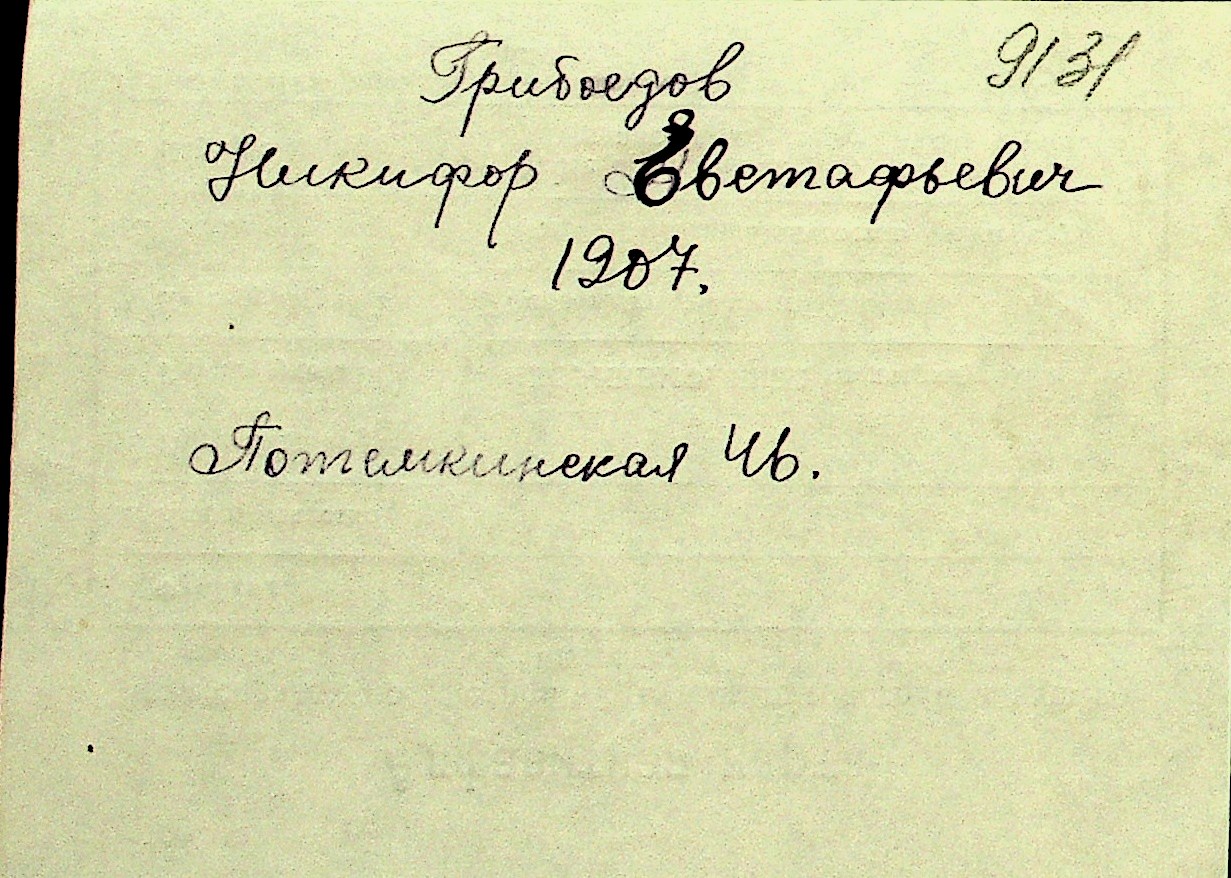 9131
Грибоедов
Никифор Евстафьевич
1907.
Потемкинская 46.